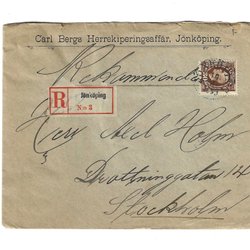 Carl Bergs Herrekiperingsaffär, Jönköping.
Rekommenderas
R Jönköping
No 3
Herr Axel Holm
Drottninggatan 14
Stockholm